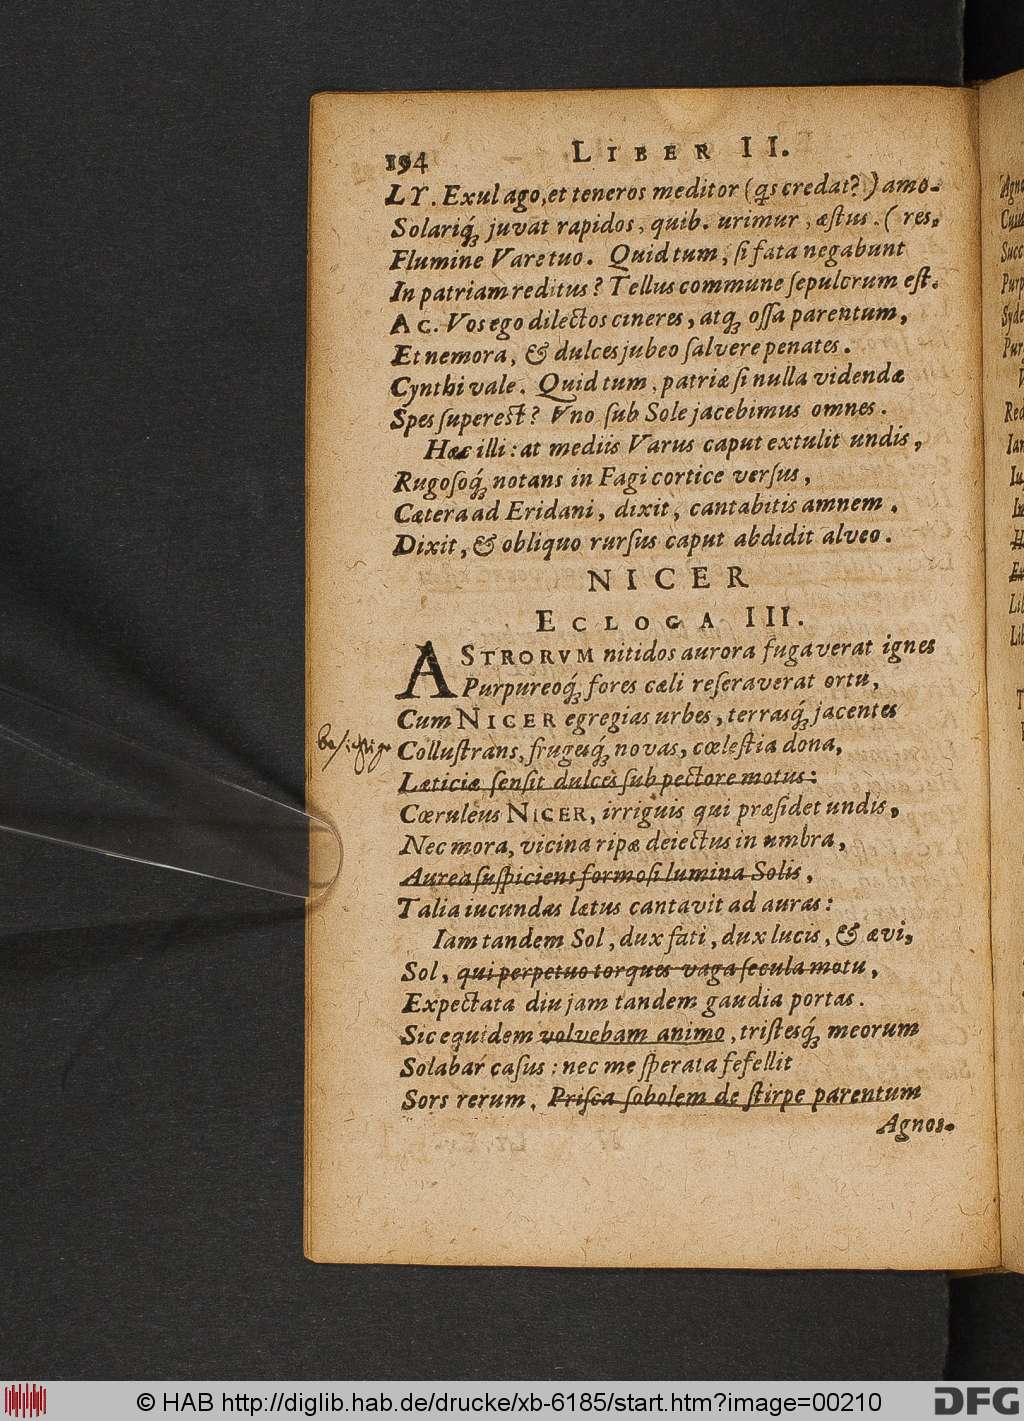 194 LIBER II.
LY. Exul ago, et teneros meditor (qs credat?) amo-
Solariq́ꝫ juvat rapidos, quib. urimur, æstus. (res,
Flumine Vare tuo. Quid tum, si fata negabunt
In patriam reditus? Tellus commune sepulcrum est.
AC. Vos ego dilectos cineres, atqꝫ ossa parentum,
Et nemora, & dulces jubeo salvere penates.
Cynthi vale. Quid tum, patriæ si nulla videndæ
Spes superest? Vno sub Sole jacebimus omnes.
Hæc illi: at mediis Varus caput extulit undis,
Rugosoq́ꝫ notans in Fagi cortice versus,
Cætera ad Eridani, dixit, cantabitis amnem.
Dixit, & obliquo rursus caput abdidit alveo.
NICER
ECLOGA III.
ASTRORVM nitidos aurora fugaverat ignes
Purpureoq́ꝫ fores cæli reseraverat ortu,
Cum NICER egregias urbes, terrasq́ꝫ jacentes
Collustrans, frugesq́ꝫ novas, cœlestia dona,
Læticiæ sensit dulces sub pectore motus:
Cœruleus NICER, irriguis qui præsidet undis,
Nec mora, vicina ripæ deiectus in umbra,
Aurea suspiciens formosi lumina Solis,
Talia iucundas lætus cantavit ad auras:
Iam tandem Sol, dux fati, dux lucis, & ævi,
Sol, qui perpetuo torques vaga secula motu,
Expectata diu jam tandem gaudia portas.
Sic equidem volvebam animo, tristesq́ꝫ meorum
Solabaŕ casus: nec me sperata fefellit
Sors rerum. Prisca sobolem de stirpe parentum
Agnos-
© HAB http://diglib.hab.de/drucke/xb-6185/start.htm?image=00210
DFG